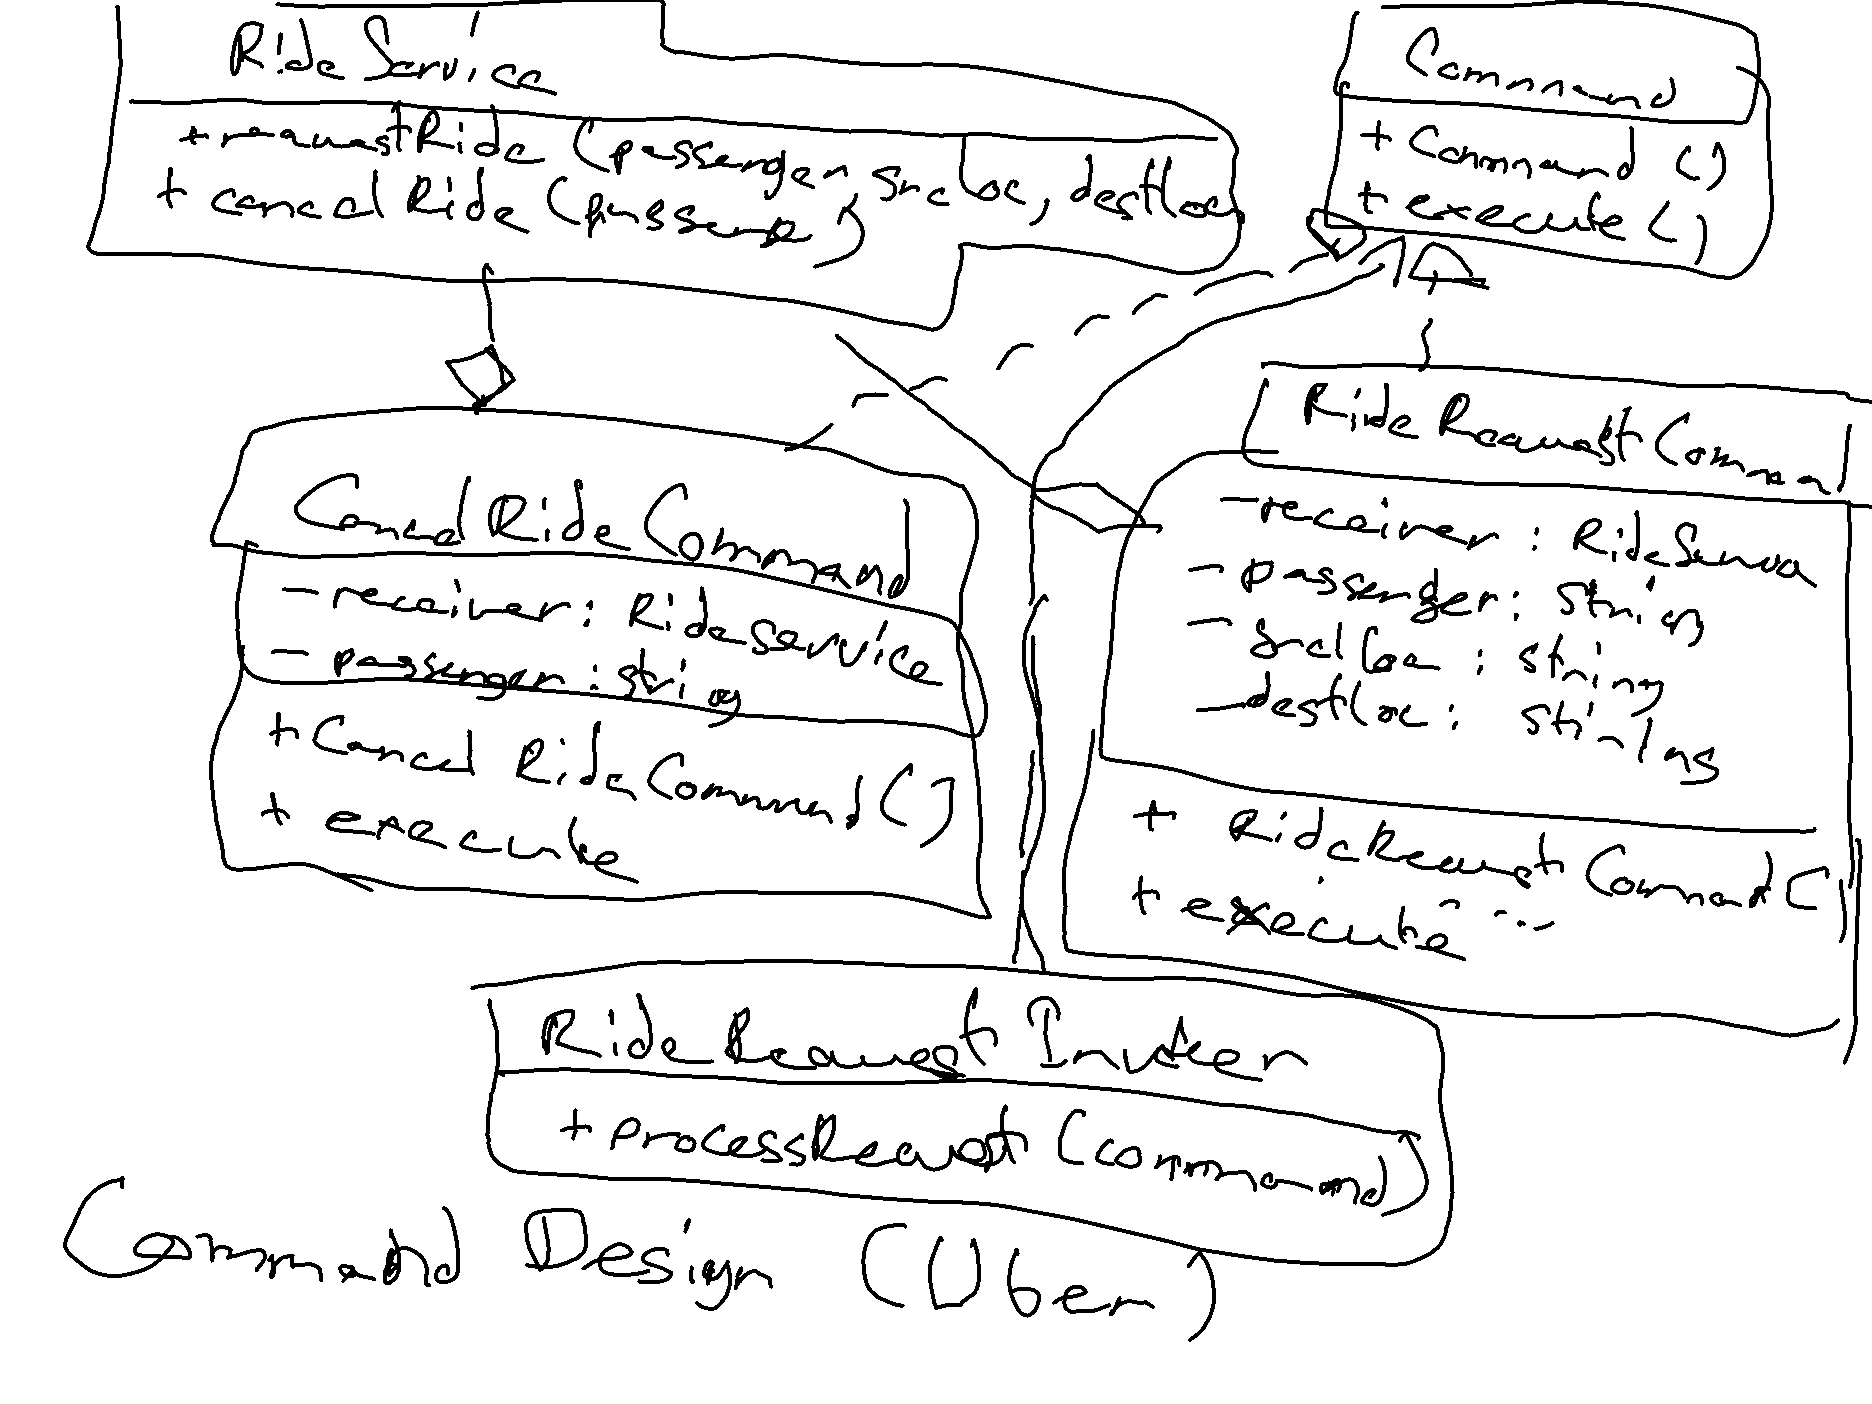 RideService
+requestRide (passenger, srcloc, destloc)
+ cancelRide (passenger)
Command
+ Command ()
+ execute ()
CancelRideCommand
- receiver: Rideservice
- passenger: string
+ Cancel RideCommand()
+ execute
RideRequestCommand
- receiver : RideService
- passenger: string
- srcloc : string
- destloc : string
+ RideRequest Command()
+ execute
RideRequest Invoker
+ processRequest (command)
Command Design (Uber)